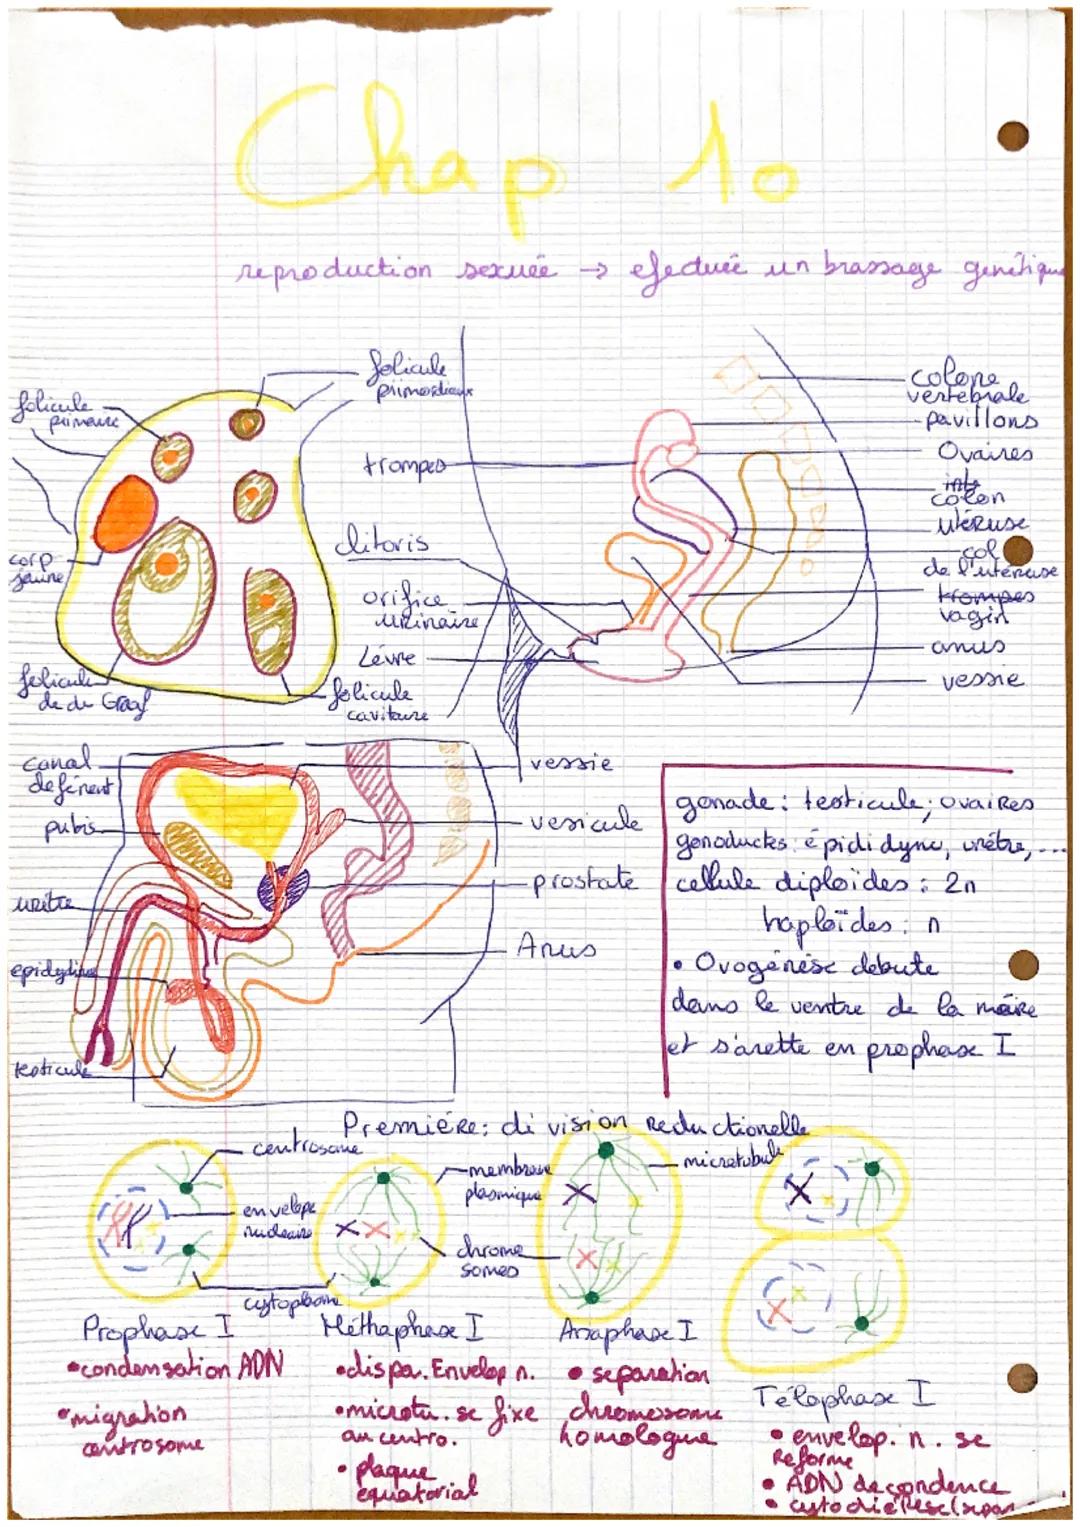 Chap 10
reproduction sexuée → efectuée un brassage génétique
folicule
primaire
folicule
primordiaux
corp
jaune
folicule
de de Graaf
folicule
cavitaire
trompes
clitoris
orifice
urinaire
Lévre
colone
vertébrale
pavillons
Ovaires
colon
utéruse
col
de l'utéruse
trompes
vagin
anus
vessie
canal
deférent
pubis
urètre
epididyme
testicule
vessie
vesicule
prostate
Anus
gonade : testicule ; ovaires
gonoductes : épididyme, urétre, ...
cellule diploïdes : 2n
haploïdes : n
• Ovogénèse débute
dans le ventre de la mère
et s'arette en prophase I
Première : division reductionelle
centrosome
envelope
nucleaire
cytoplasme
membrane
plasmique
chromo
somes
microtubule
Prophase I
• condensation ADN
• migration
centrosome
Méthaphase I
• dispa. Envelop n.
• microtu. se fixe
au centro.
• plaque
equatorial
Anaphase I
• separation
chromosome
homologue
Télophase I
• envelop. n. se
Reforme
• ADN decondence